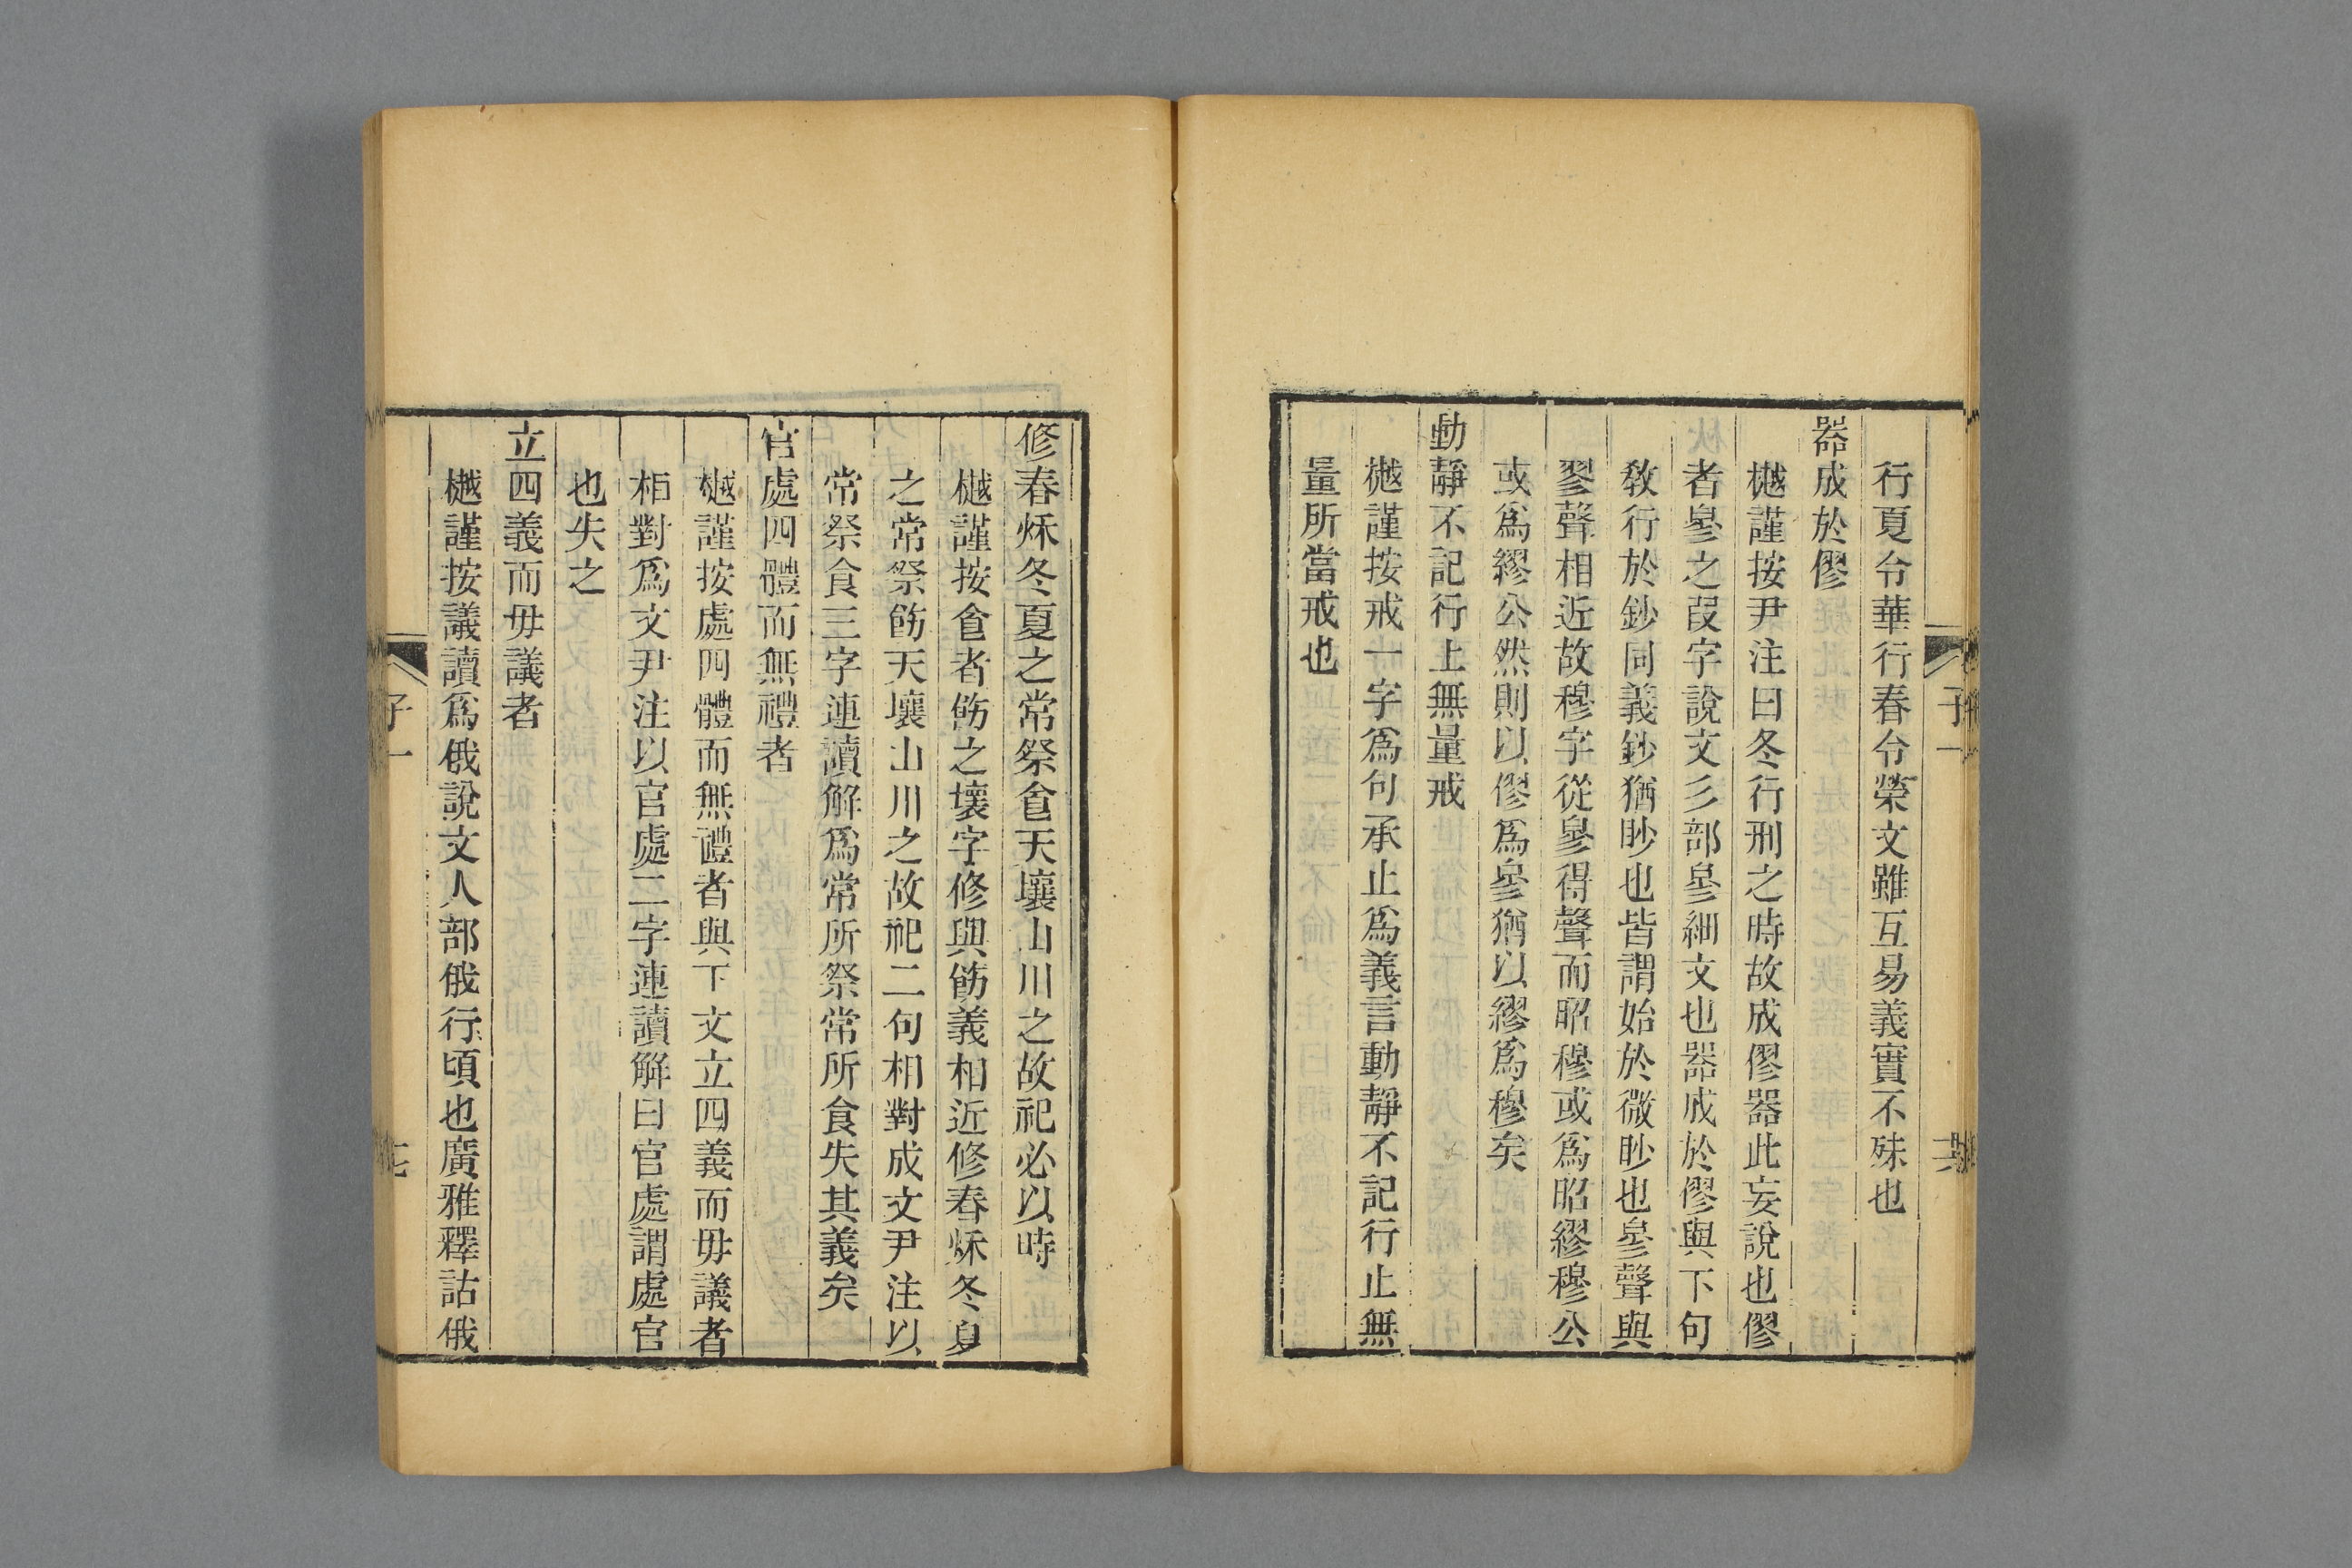 行夏令華行春令榮文雖互易義實不殊也
器成於僇
樾謹按尹注曰冬行刑之時故成僇器此妄說也僇
者㣎之叚字說文彡部㣎細文也器成於僇與下句
敎行於鈔同義鈔猶眇也皆謂始於微眇也㣎聲與
翏聲相近故穆字從㣎得聲而昭穆或爲昭繆穆公
或爲繆公然則以僇爲㣎猶以繆爲穆矣
動靜不記行止無量戒
樾謹按戒一字爲句承止爲義言動靜不記行止無
量所當戒也
子一
修春秌冬夏之常祭食天壤山川之故祀必以時
樾謹按食者飭之壞字修與飭義相近修春秌冬夏
之常祭飭天壤山川之故祀二句相對成文尹注以
常祭食三字連讀解爲常所祭常所食失其義矣
官處四體而無禮者
樾謹按處四體而無禮者與下文立四義而毋議者
相對爲文尹注以官處二字連讀解曰官處謂處官
也失之
立四義而毋議者
樾謹按議讀爲俄說文人部俄行頃也廣雅釋詁俄
子一